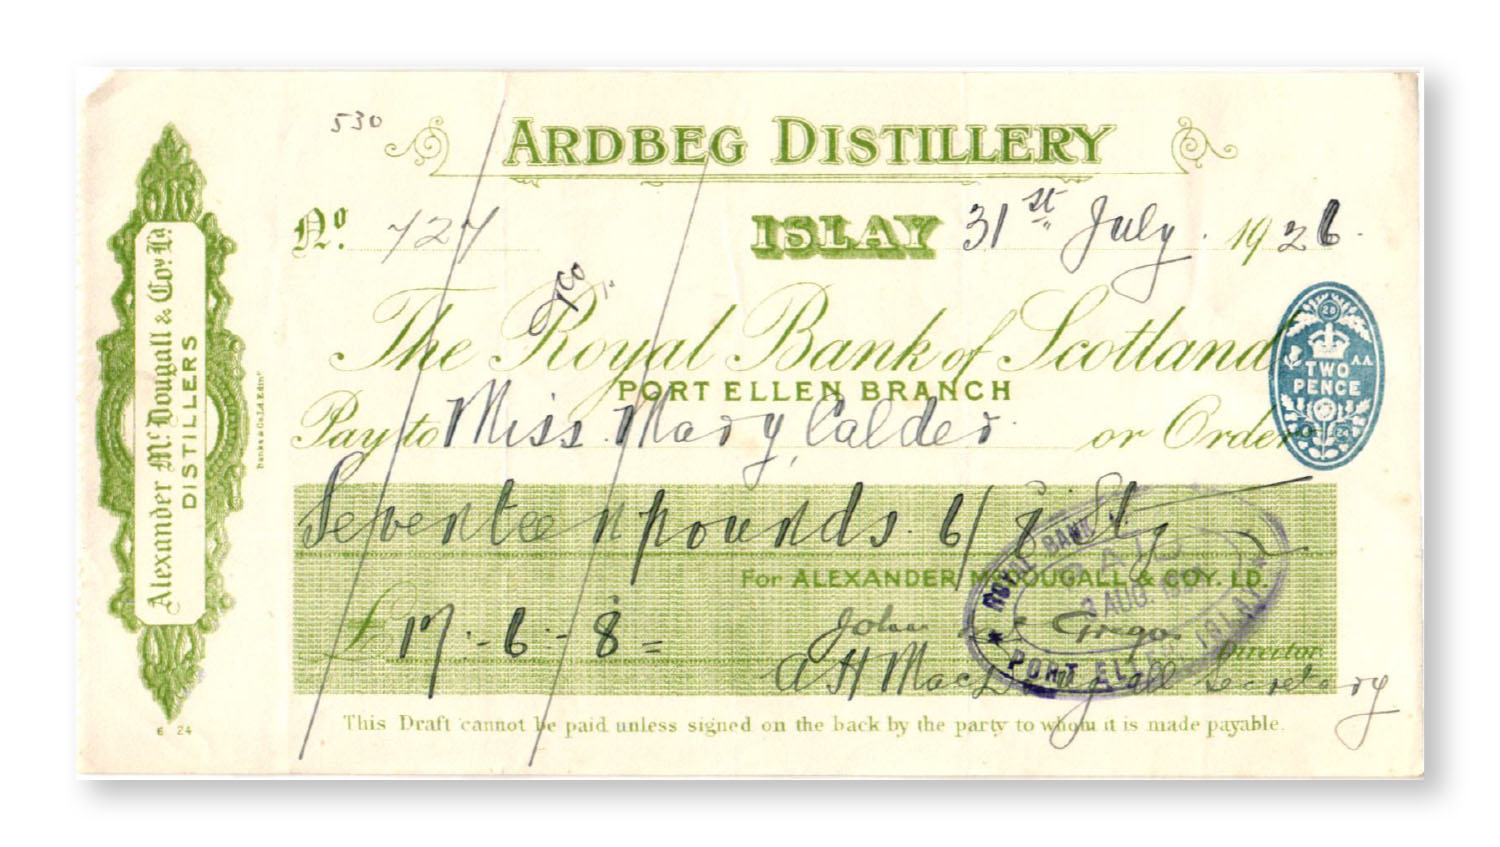 530
ARDBEG DISTILLERY
No. 727
ISLAY 31st July. 1926.
The Royal Bank of Scotland
PORT ELLEN BRANCH
Pay to Miss Mary Calder or Order
Seventeen pounds 6/8
For ALEXANDER McDOUGALL & COY. LD.
£17-6-8=
John
Director
A H MacDougall Secretary
This Draft cannot be paid unless signed on the back by the party to whom it is made payable.
Alexander McDougall & Coy. Ld.
DISTILLERS
Banks & Co. Ld. Edinr.
6 24
28
A.A.
TWO
PENCE
24
ROYAL BANK
PAID
AUG. 192
PORT ELLEN, ISLAY